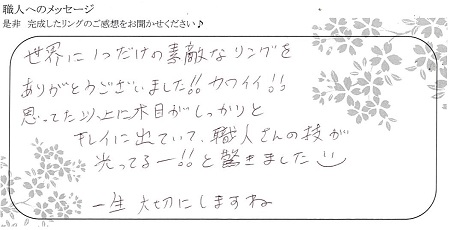 職人へのメッセージ
是非 完成したリングのご感想をお聞かせください♪
世界に1つだけの素敵なリングを
ありがとうございました!! カワイイ!!
思ってた以上に木目がしっかりと
キレイに出ていて、職人さんの技が
光ってるー!!と驚きました
一生 大切にしますね